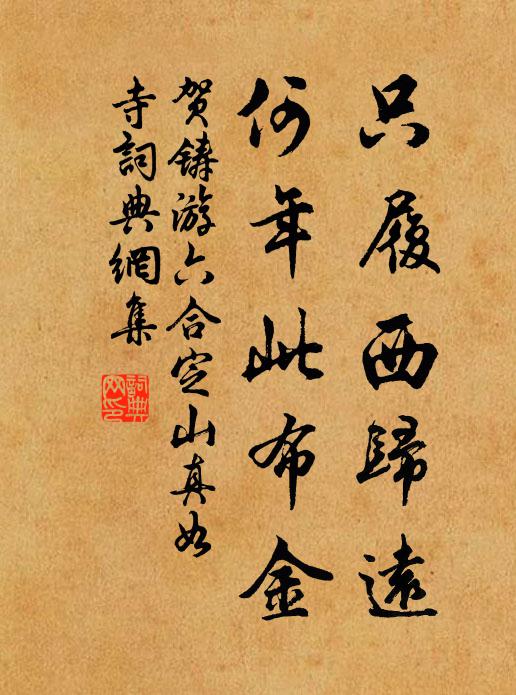 只履西歸遠
何年此布金
贺鑄游六合定山真如
寺詞典網集
詞典
网印